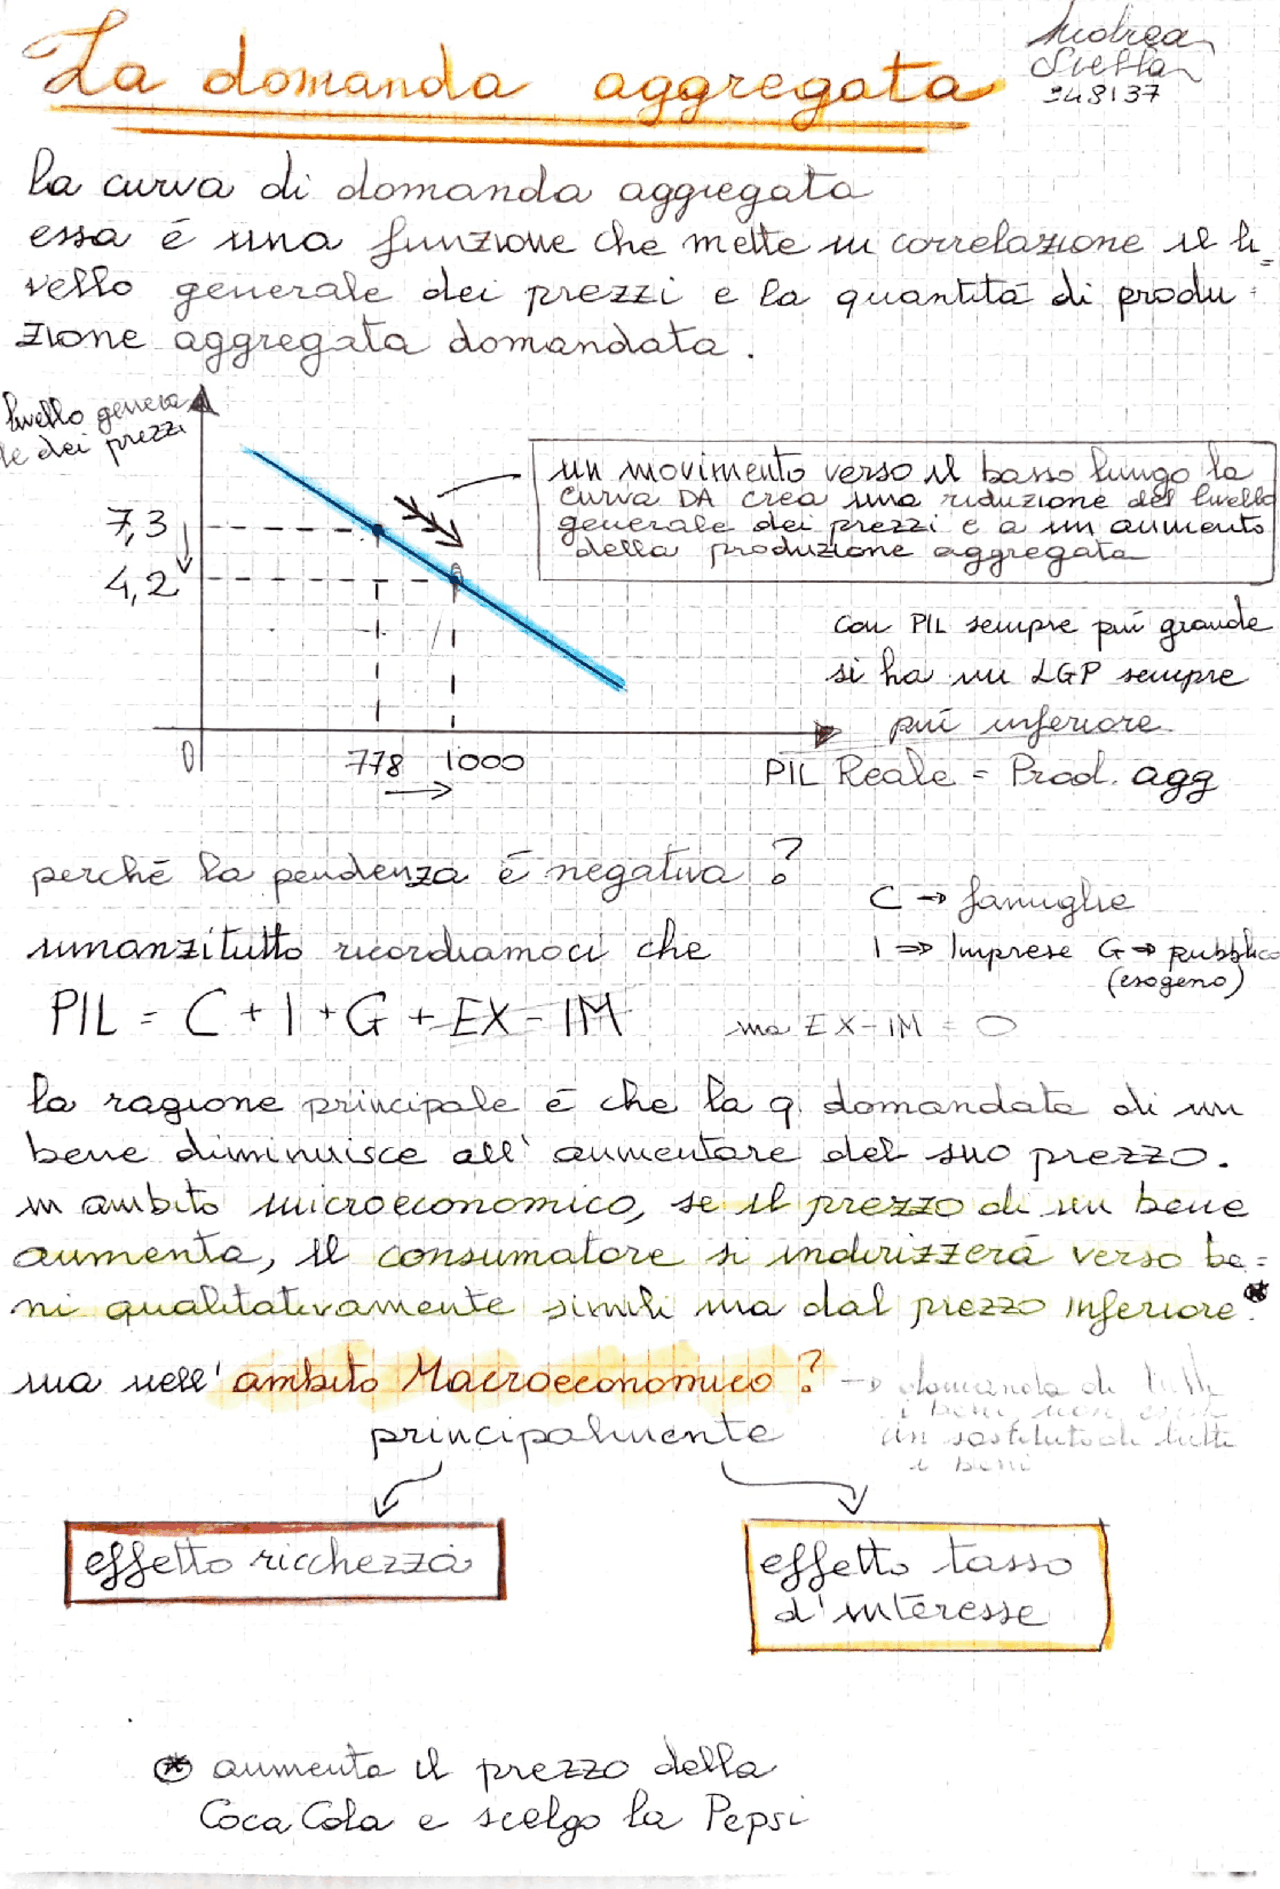 La domanda aggregata
Andrea
Stella
348137
la curva di domanda aggregata
essa é una funzione che mette in correlazione il li=
vello generale dei prezzi e la quantitá di produ=
zione aggregata domandata.
livello genera
le dei prezzi
7,3
4,2
un movimento verso il basso lungo la
curva DA crea una riduzione del livello
generale dei prezzi e a un aumento
della produzione aggregata
con PIL sempre piú grande
si ha un LGP sempre
piú inferiore
0
778
1000
PIL Reale = Prod. agg
perché la pendenza é negativa?
innanzitutto ricordiamoci che
C → famiglie
I ⇒ Imprese G ⇒ pubblico
(esogeno)
PIL = C + I + G + EX - IM
ma EX - IM = 0
la ragione principale é che la q domandata di un
bene diminuisce all' aumentare del suo prezzo.
in ambito microeconomico, se il prezzo di un bene
aumenta, il consumatore si indirizzerá verso be=
ni qualitativamente simili ma dal prezzo inferiore.*
ma nell' ambito Macroeconomico?
→ domanda di tutti
i beni, non
un sostituto di tutti
i beni
principalmente
effetto ricchezza
effetto tasso
d'interesse
* aumenta il prezzo della
Coca Cola e scelgo la Pepsi